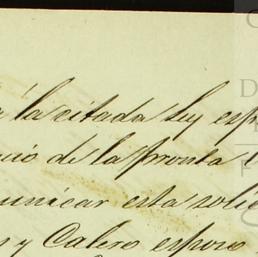 á la citada Ley esp
cio de la pronta
unicar esta solic
s y Calero esposo